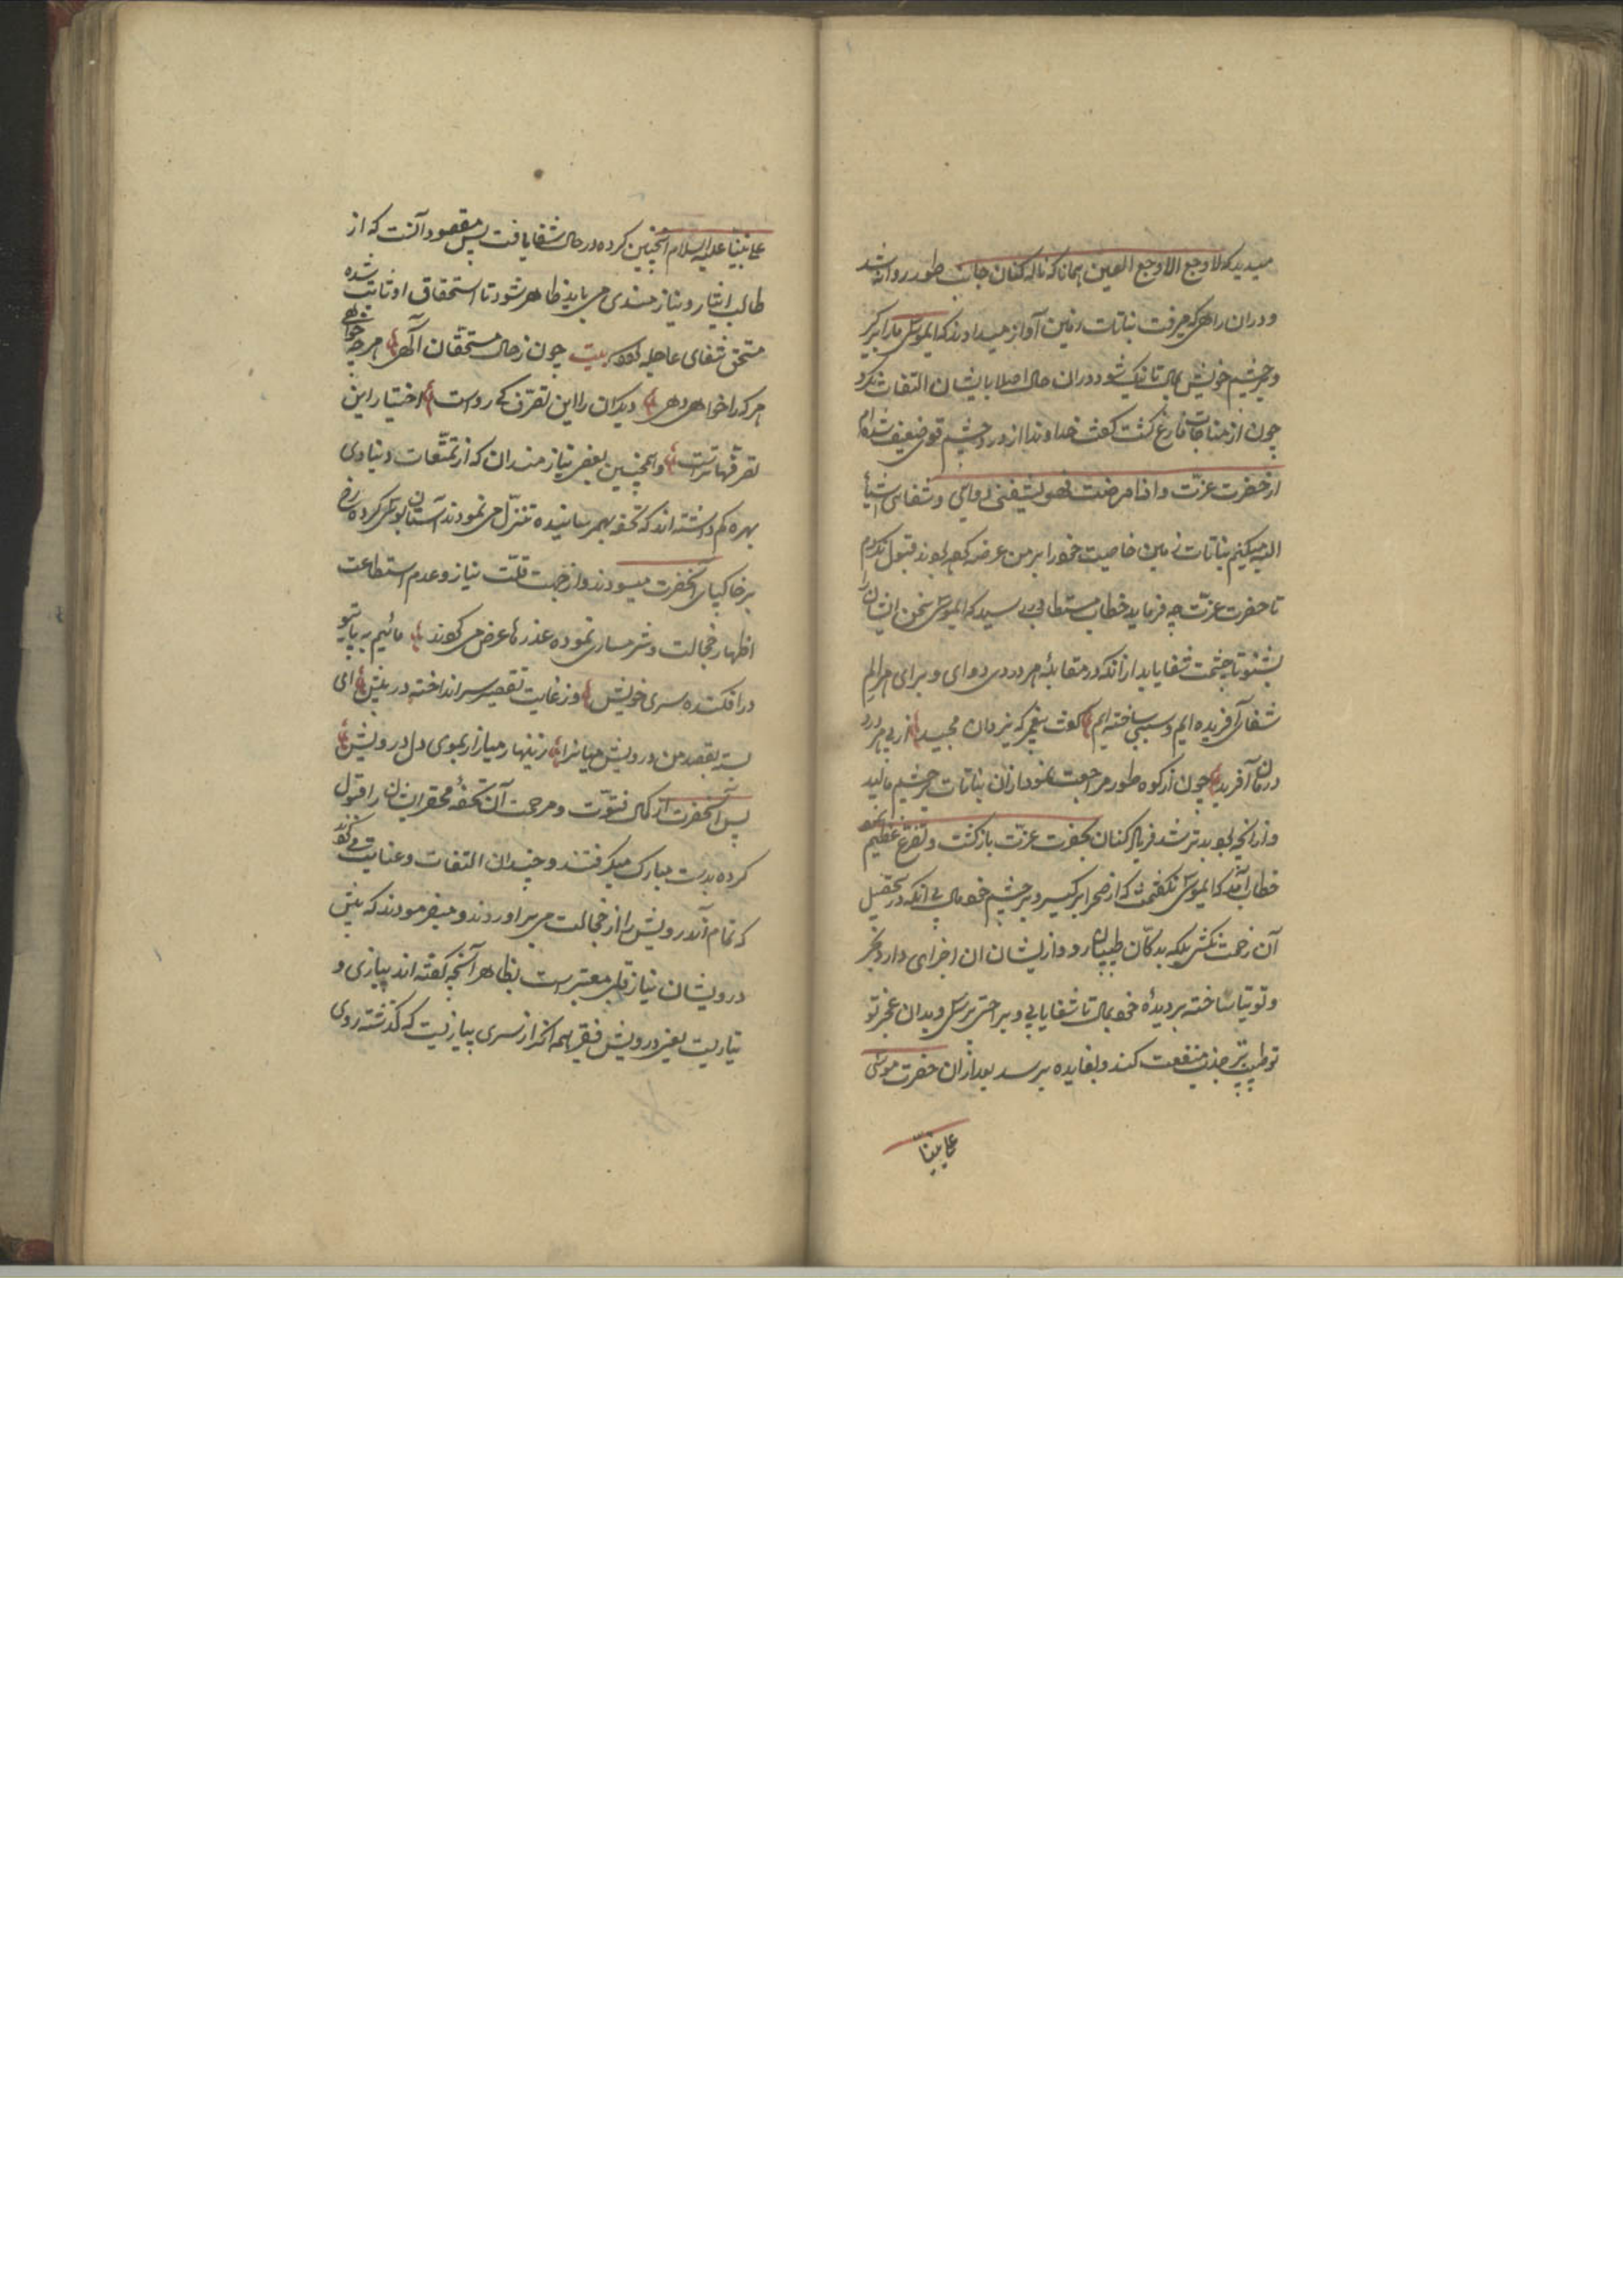 میدید که لا وجع الا وجع العین همانا که ناله کنان جانب طور روانه شد
و دران راهی که میرفت نباتات زمین آواز میدادند که ایموسی مارا برگیر
و بر چشم خویش بمال تا نیک شود دران حال اصلا بایشان التفات نکرد
چون از مناجات فارغ گشت گفت خداوندا از درد چشم قوی ضعیف شده‌ام
از حضرت عزت و اذا مرضت فهو یشفینی دوای و شفای اشیأ
میکنیم نباتات زمین خاصیت خود را بر من عرضه کرده بودند قبول نکردم
تا حضرت عزت چه فرماید خطاب مستطاب رسید که ایموسی سخن ایشان را
بشنو تا چشمت شفا یابد ازانکه در مقابلهٔ هر دردی دوای و برای هر الم
شفای آفریده ایم و سببی ساخته ایم گفت پیغمبر که یزدان مجید از پی هر درد
درمان آفرید چون از کوه طور مراجعت نمود ازان نباتات بر چشم مالید
و ازانچه بود بدتر شد فریاد کنان بحضرت عزت باز گشت و تضرع عظیم نمود
خطاب آمد که ایموسی نگفتمت که از صحرا برگیر و بر چشم خود مال بی آنکه در تحصیل
آن زحمت نکشی بلکه بدکان طبیبان رو و از ایشان ان اجزای دارو بخر
و توتیا ساخته بر دیدهٔ خود بمال تا شفا یابی و براحتی برسی و بدان عجز تو
طبیب نیز جذب منفعت کند و بفایده برسد بعد ازان حضرت موسی
علی نبینا
علی نبینا علیه السلام انچنین کرده در حال شفا یافت پس مقصود آنست که از
طالب ایثار و نیازمندی می باید ظاهر شود تا استحقاق او ثابت شده
مستحق شفای عاجله گردد بیت چون ز حال مستحقان آگهی هر چه خواهی
هر کرا خواهی دهی دیگران را این تصرف کی رواست اختیار این
تصرفها تراست و همچنین بعضی نیازمندان که از تمتعات دنیاوی
بهره کم داشته اند که تحفه بهم رسانیده تنزل می نمودند آستان بوسی کرده رخ
بر خاکپای آنحضرت میسودند و از جهت قلت نیاز و عدم استطاعت
اظهار خجالت و شرمساری نموده عذرها عرض می کردند مائیم به پای تو
در افکنده سری خویش وز غایت تقصیر سر انداخته در پیش ای
بسته بقصد من درویش میانرا زینهار میازار بموی دل درویش
پس آنحضرت از کمال فتوت و مرحمت آن تحفهٔ محقر ایشان را قبول
کرده بدست مبارک میگرفتند و چندان التفات و عنایت می کردند
که تمام آن درویش را از خجالت می براوردند و میفرمودند که پیش
درویشان نیاز قلبی معتبر است بظاهر آنچه گفته اند پیازی و
نیازیست یعنی درویش فقیر همه آخر از سری پیاز نیست که گذشته روی